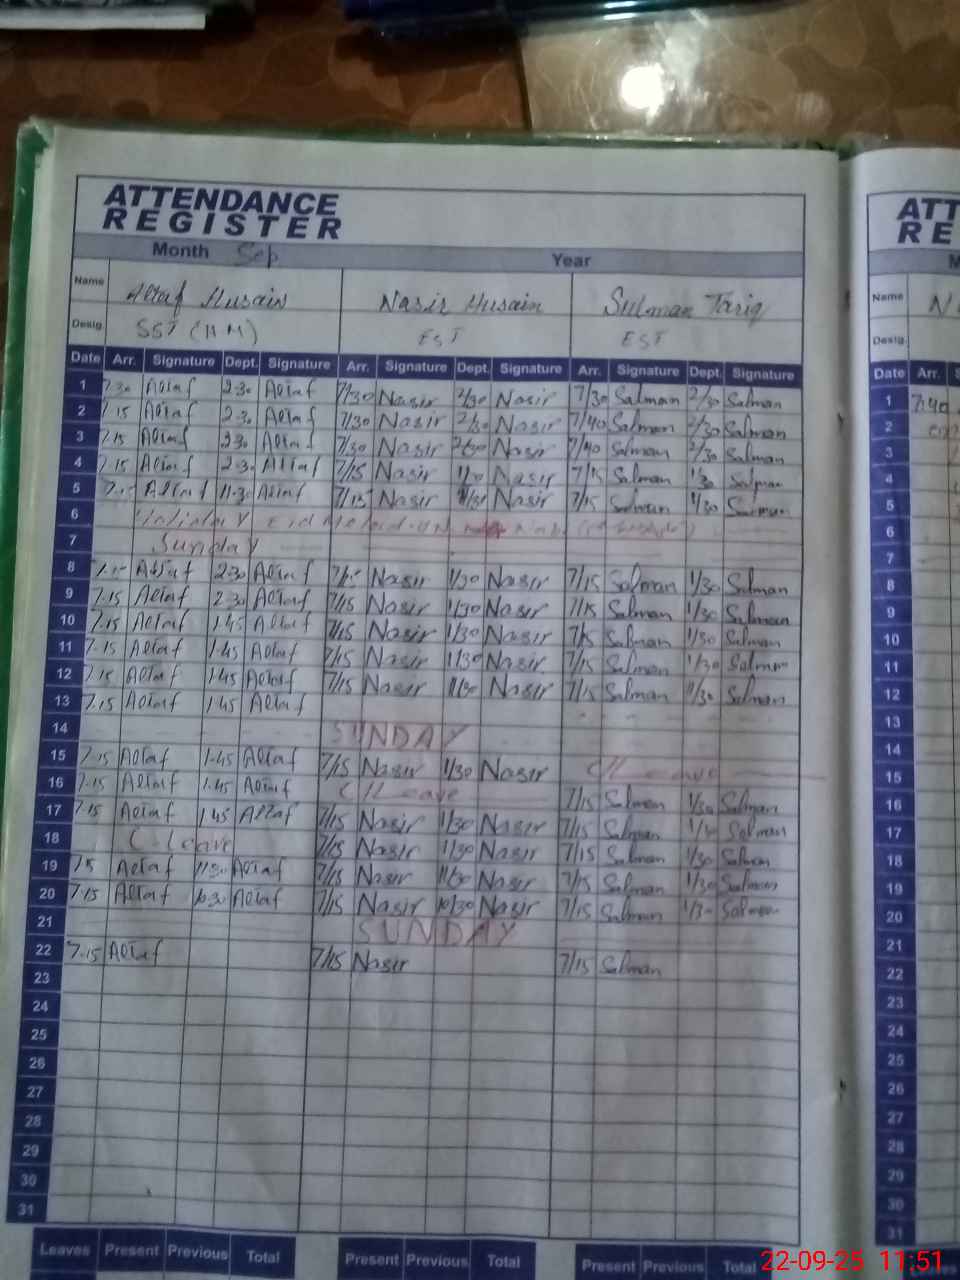 ATTENDANCE
REGISTER
Month Sep Year
Name Altaf Husain Nasir Husain Sulman Tariq
Desig. SST (HM) EST EST
Date Arr. Signature Dept. Signature Arr. Signature Dept. Signature Arr. Signature Dept. Signature
1 7.30 Altaf 2.30 Altaf 7/30 Nasir 2/30 Nasir 7/30 Salman 2/30 Salman
2 7.15 Altaf 2.30 Altaf 7/30 Nasir 2/30 Nasir 7/40 Salman 2/30 Salman
3 7.15 Altaf 2.30 Altaf 7/30 Nasir Nasir 7/40 Salman 2/30 Salman
4 7.15 Altaf 2.30 Altaf 7/15 Nasir Nasir 7/15 Salman 1/30 Salman
5 Altaf 11.30 Altaf 7/15 Nasir 11/30 Nasir 7/15 Salman 1/30 Salman
6 Holiday Eid
7 Sunday
8 Altaf 2.30 Altaf Nasir 1/30 Nasir 7/15 Salman 1/30 Salman
9 7.15 Altaf 2.30 Altaf 7/15 Nasir 1/30 Nasir 7/15 Salman 1/30 Salman
10 7.15 Altaf 1.45 Altaf 7/15 Nasir 1/30 Nasir 7/15 Salman 1/30 Salman
11 7.15 Altaf 1.45 Altaf 7/15 Nasir 1/30 Nasir 7/15 Salman 1/30 Salman
12 7.15 Altaf 1.45 Altaf 7/15 Nasir Nasir 7/15 Salman 11/30 Salman
13 7.15 Altaf 1.45 Altaf
14 SUNDAY
15 7.15 Altaf 1.45 Altaf 7/15 Nasir 1/30 Nasir C/Leave
16 7.15 Altaf 1.45 Altaf C/Leave 7/15 Salman 1/30 Salman
17 7.15 Altaf 1.45 Altaf 7/15 Nasir 1/30 Nasir 7/15 Salman Salman
18 C. Leave 7/15 Nasir 1/30 Nasir 7/15 Salman 1/30 Salman
19 Altaf 11.30 Altaf 7/15 Nasir 11/30 Nasir 7/15 Salman 1/30 Salman
20 7.15 Altaf Altaf 7/15 Nasir 10/30 Nasir 7/15 Salman Salman
21 SUNDAY
22 7.15 Altaf 7/15 Nasir 7/15 Salman
23
24
25
26
27
28
29
30
31
Leaves Present Previous Total Present Previous Total Present Previous Total
ATT
RE
Name N
Desig.
Date Arr.
1 7.40
2
3
4
5
6
7
8
9
10
11
12
13
14
15
16
17
18
19
20
21
22
23
24
25
26
27
28
29
30
31
22-09-25 11:51